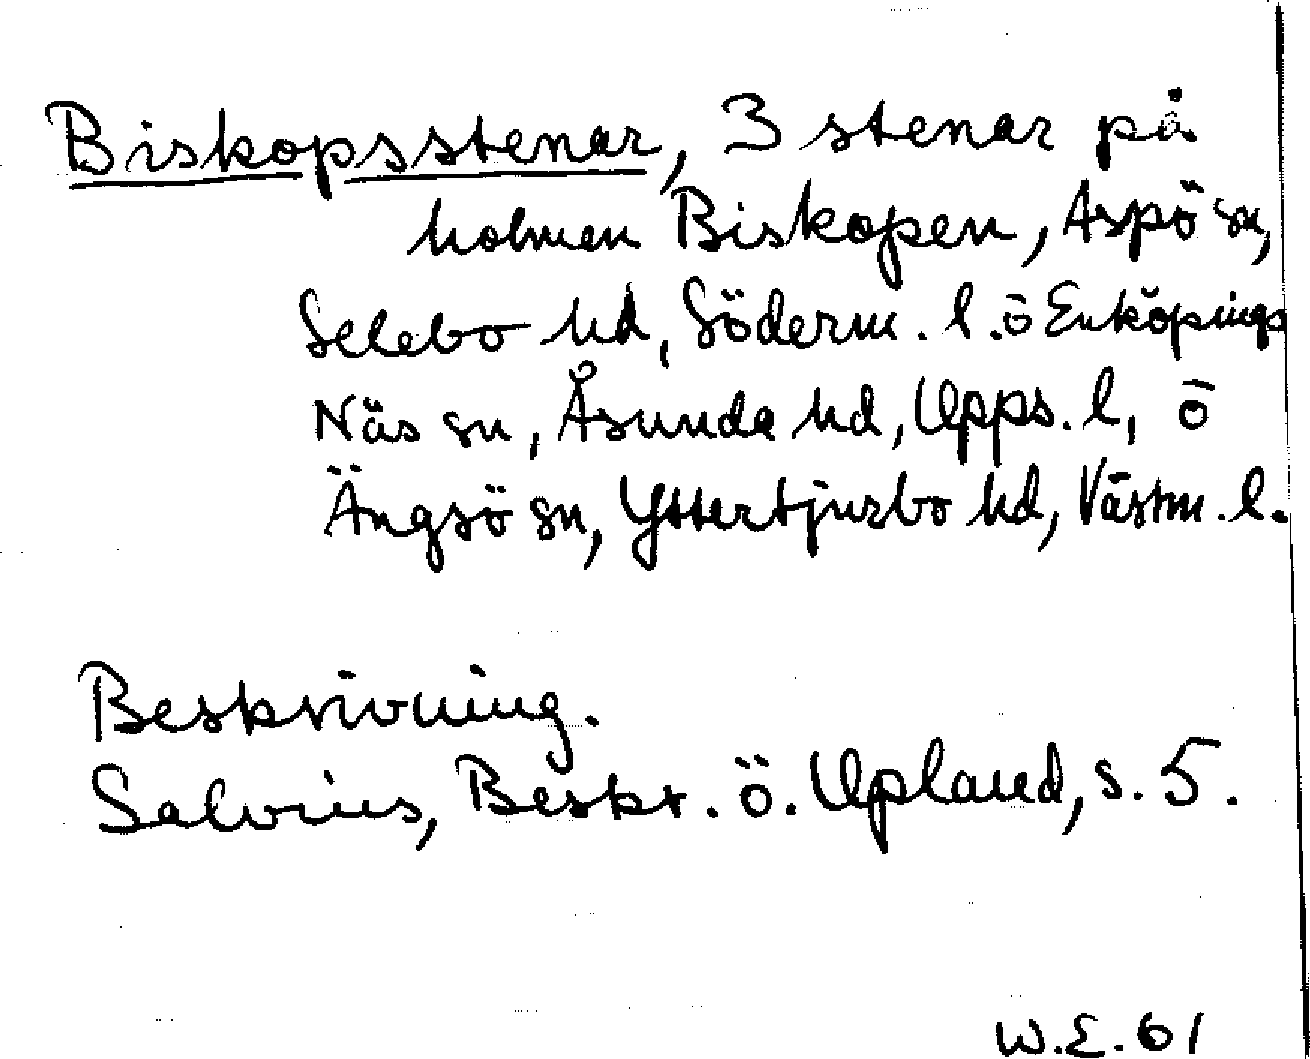 Biskopsstenar, 3 stenar på
holmen Biskopen, Aspö sn,
Selebo hd, Söderm. l. o Enköpings
Näs sn, Åsunda hd, Upps. l, o
Ängsö sn, Yttertjurbo hd, Västm. l.
Beskrivning.
Salvius, Beskr. ö. Upland, s. 5.
W.E. 61